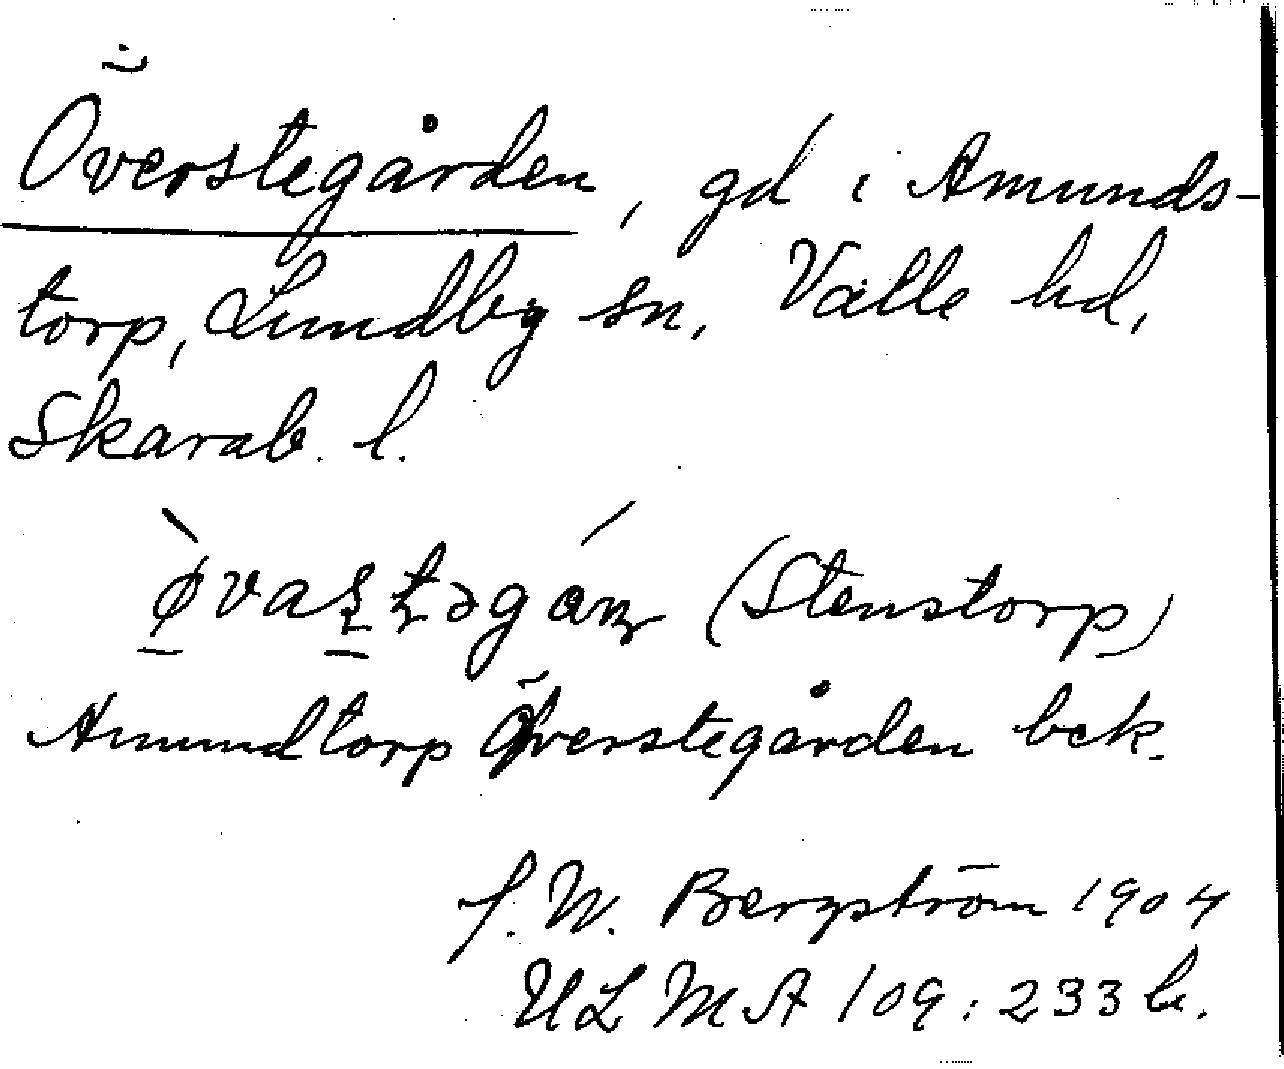 Överstegården, gd i Amunds-
torp, Lundby sn, Valle hd,
Skarab. l.
(Stenstorp)
Amundtorp Överstegården bek.
J. W. Bergström 1904
ULMA 109:233 b.